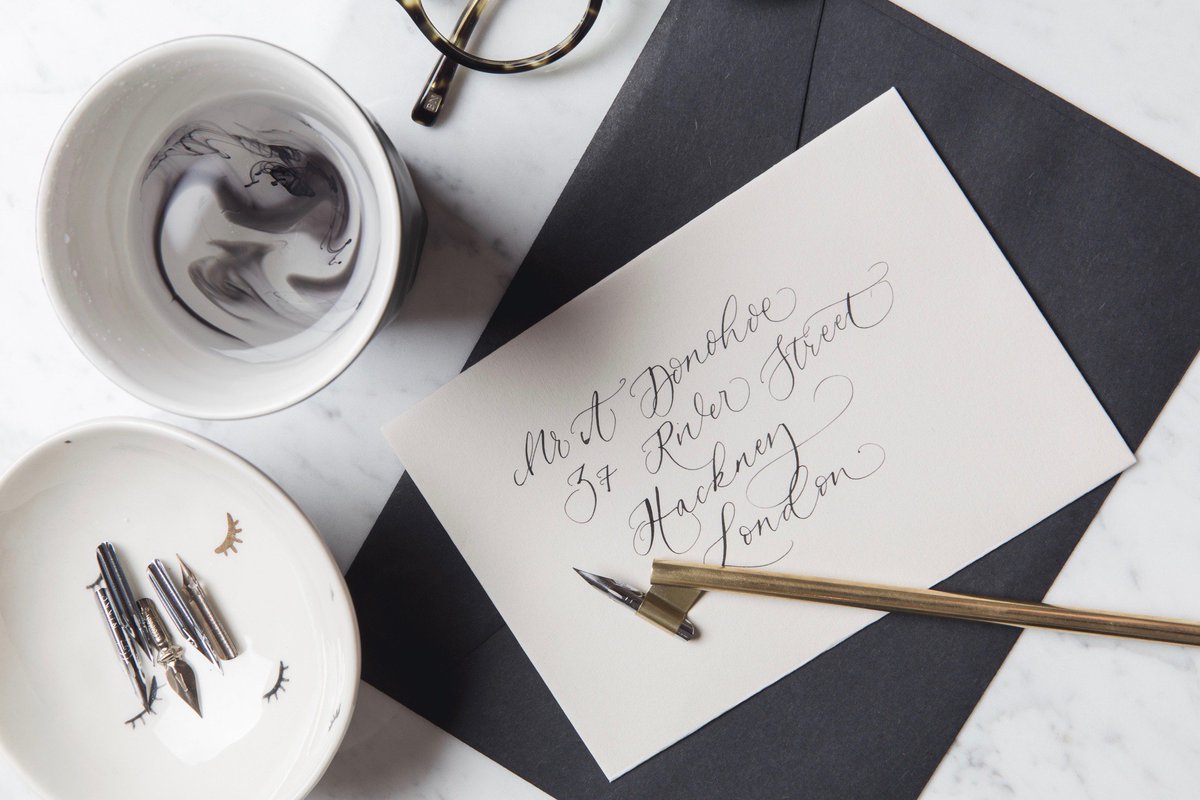 Mr A Donohoe
37 River Street
Hackney
London